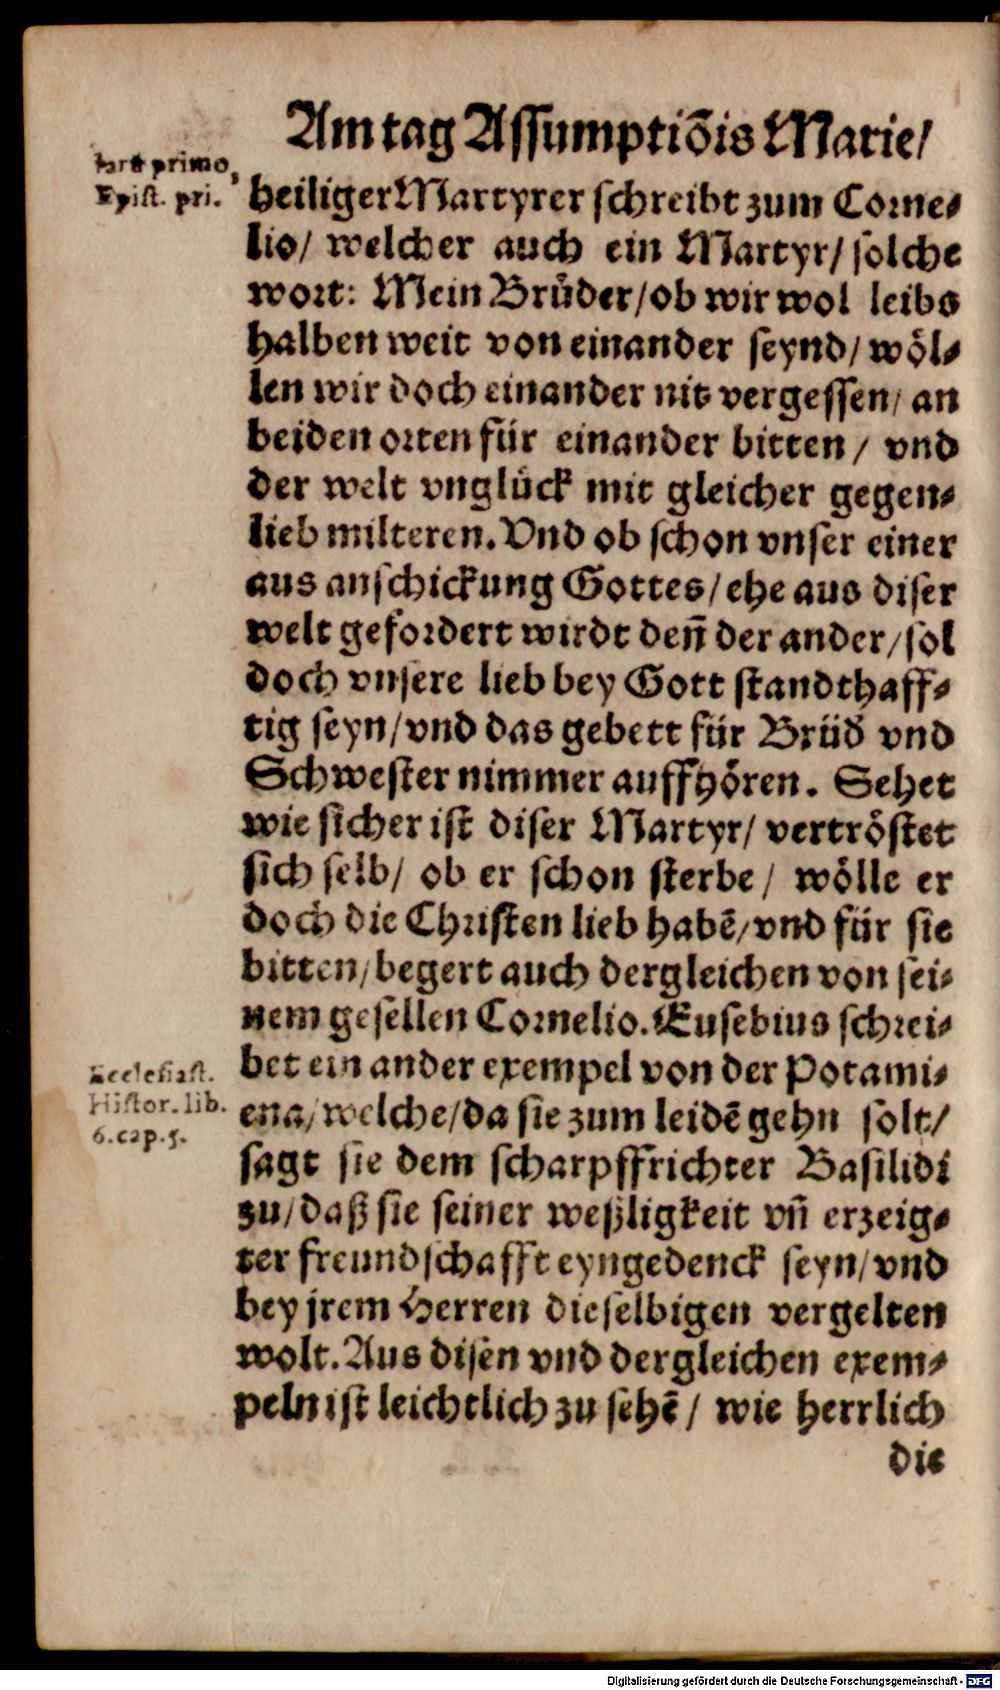 Am tag Assumptiōis Marie/
primo,
Epist. pri.
heiliger Martyrer schreibt zum Corne-
lio/ welcher auch ein Martyr/ solche
wort: Mein Brůder/ ob wir wol leibs
halben weit von einander seynd/ wöl-
len wir doch einander nit vergessen/ an
beiden orten für einander bitten/ vnd
der welt vnglück mit gleicher gegen-
lieb milteren. Vnd ob schon vnser einer
aus anschickung Gottes/ ehe aus diser
welt gefordert wirdt deñ der ander/ sol
doch vnsere lieb bey Gott standthaff-
tig seyn/ vnd das gebett für Brüd̄ vnd
Schwester nimmer auffhören. Sehet
wie sicher ist diser Martyr/ vertröstet
sich selb/ ob er schon sterbe/ wölle er
doch die Christen lieb habē/ vnd für sie
bitten/ begert auch dergleichen von sei-
nem gesellen Cornelio. Eusebius schrei-
bet ein ander exempel von der Potami-
ena/ welche/ da sie zum leidē gehn solt/
sagt sie dem scharpffrichter Basilidi
zu/ daß sie seiner weßligkeit vñ erzeig-
ter freundschafft eyngedenck seyn/ vnd
bey jrem Herren dieselbigen vergelten
wolt. Aus disen vnd dergleichen exem-
peln ist leichtlich zu sehē/ wie herrlich
die
Ecclesiast.
Histor. lib.
6. cap. 5.
Digitalisierung gefördert durch die Deutsche Forschungsgemeinschaft - DFG